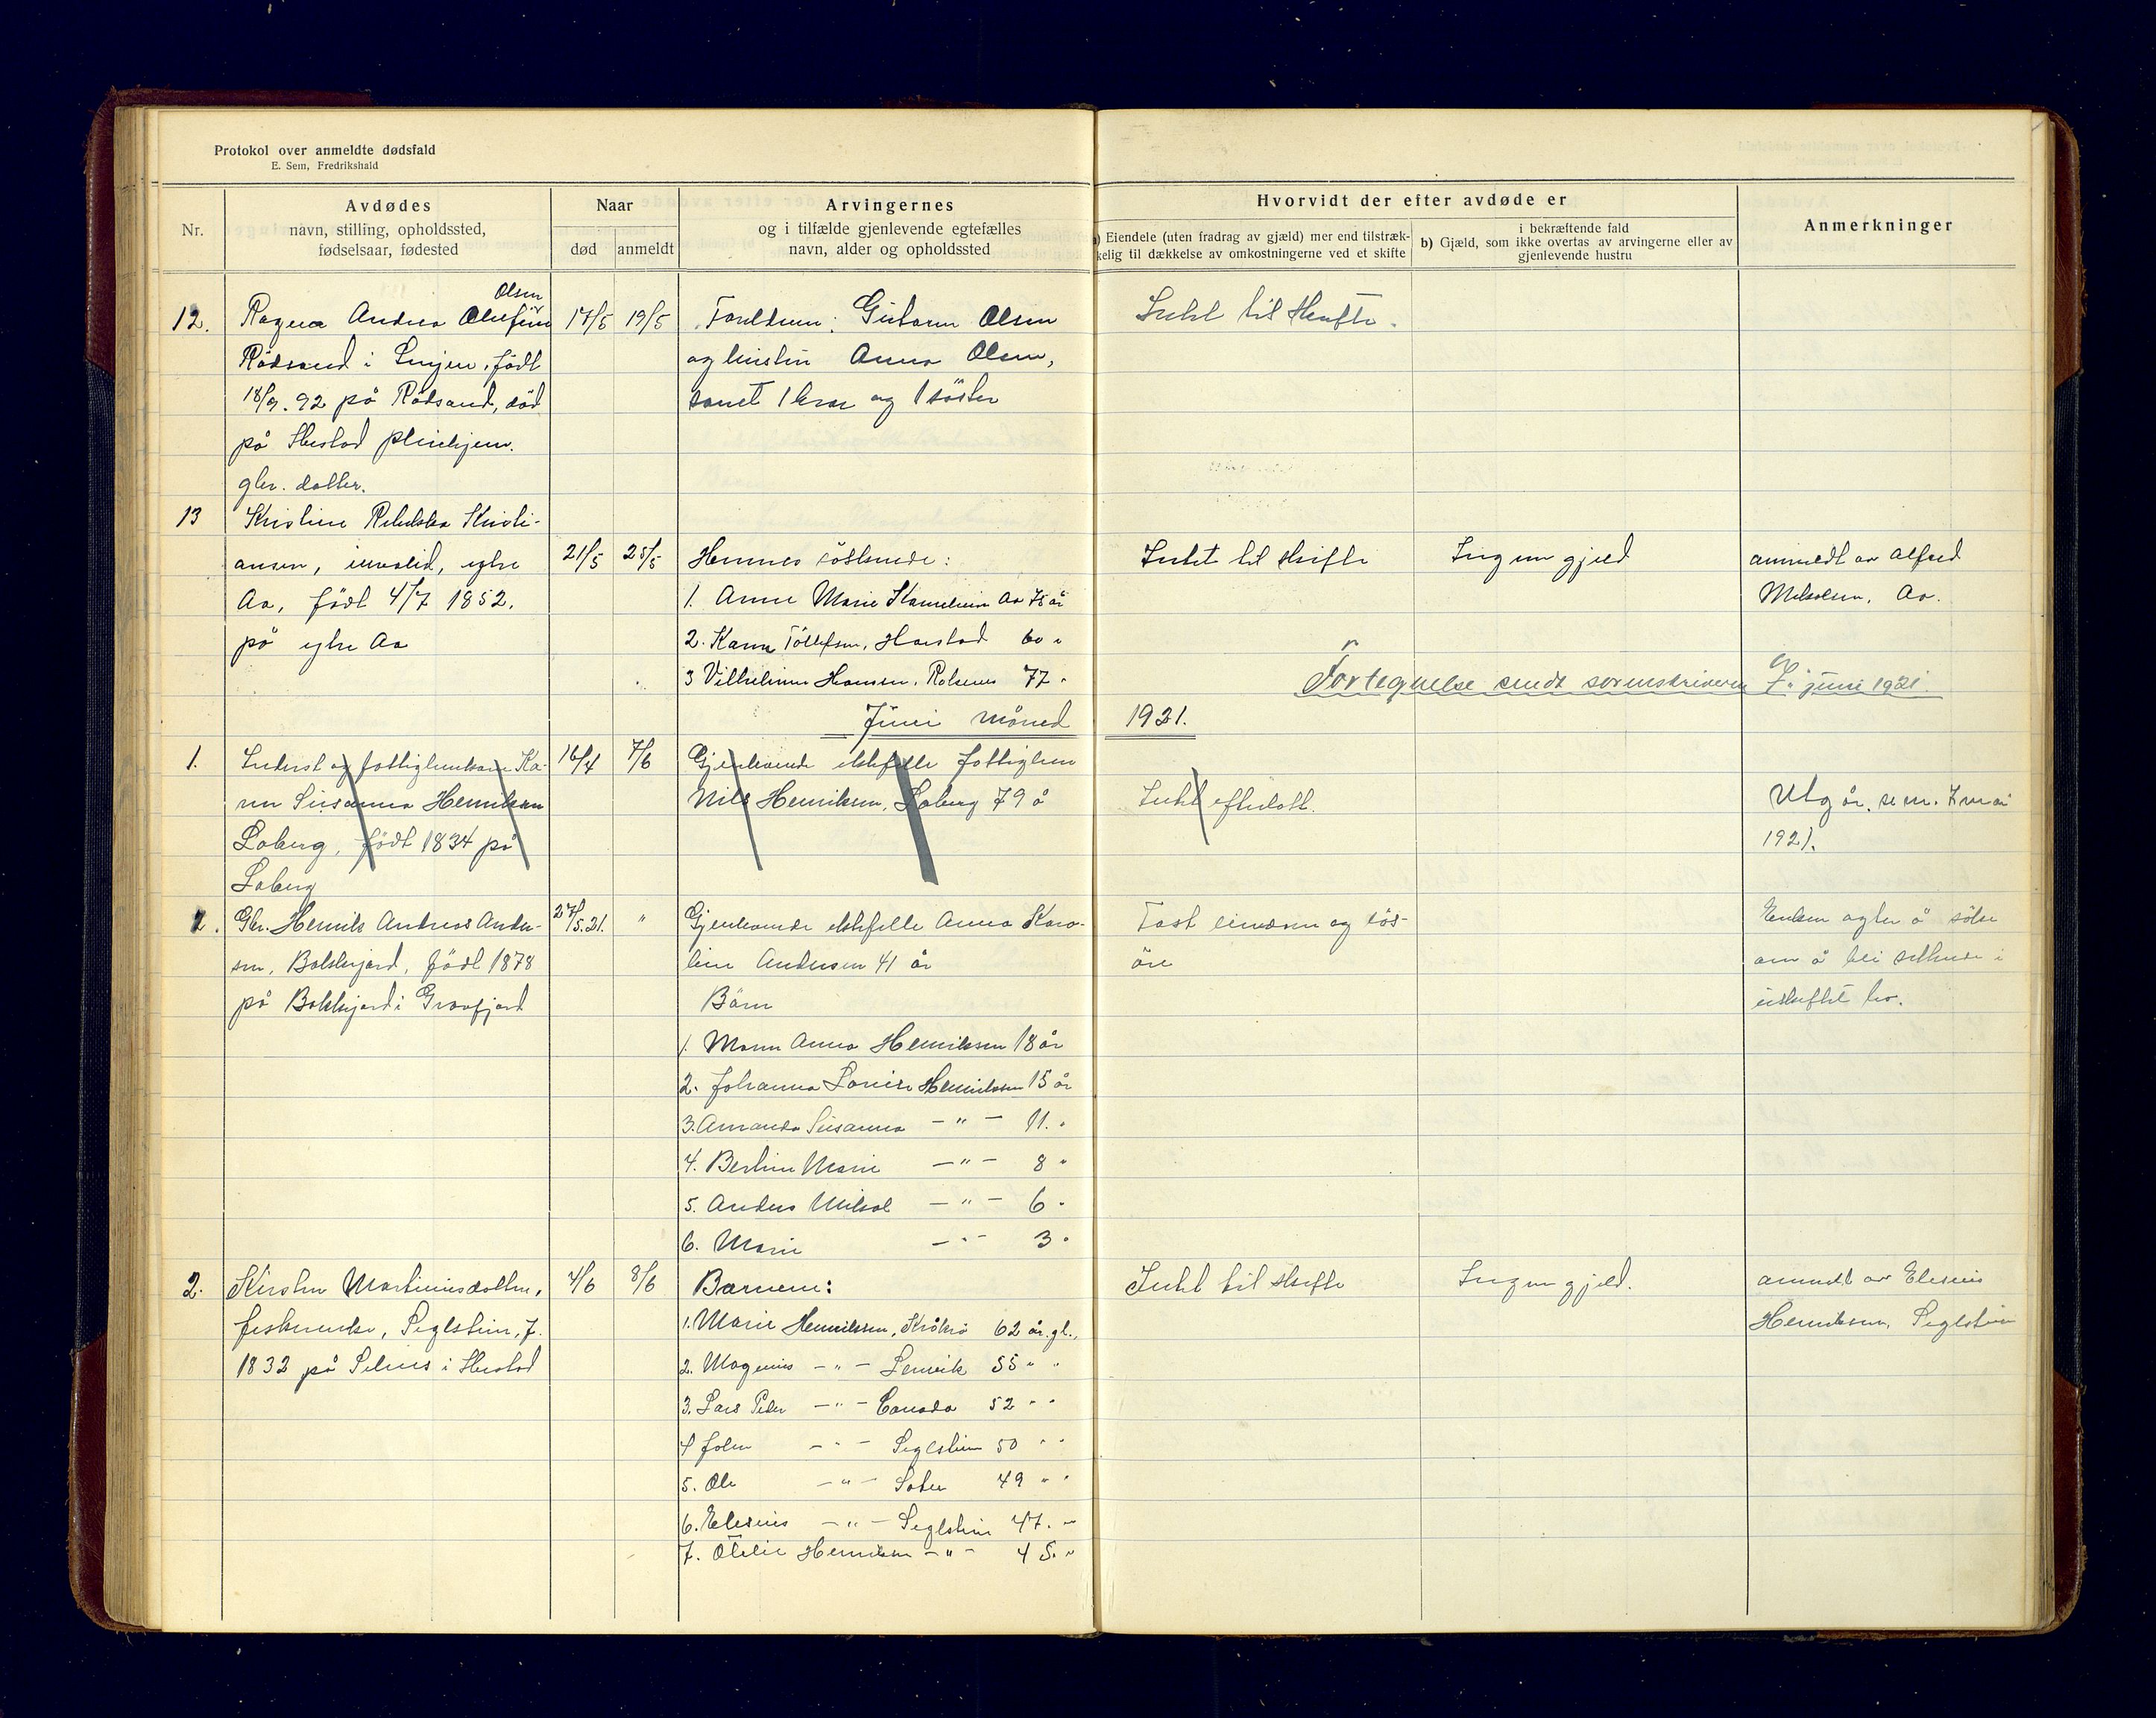 Protokol over anmeldte dødsfald
E. Sem, Fredrikshald
Nr.
Avdødes
navn, stilling, opholdssted,
fødselsaar, fødested
Naar
død
anmeldt
Arvingernes
og i tilfælde gjenlevende egtefælles
navn, alder og opholdssted
Hvorvidt der efter avdøde er
a) Eiendele (uten fradrag av gjæld) mer end tilstræk-
kelig til dækkelse av omkostningerne ved et skifte
i bekræftende fald
b) Gjæld, som ikke overtas av arvingerne eller av
gjenlevende hustru
Anmerkninger
Olsen
12. Ragna Andrea 17/5 19/5 Foreldrene: Gustav Olsen Intet til skifte.
Rödsand i , født og hustru Anna Olsen,
18/9.92 på Rödsand, død samt 1 bror og 1 söster
på Ibestad pleiehjem.
gbr. datter.
13 Kristine Rebekka Kristi-
ansen, invalid, ytre 21/5 25/5 Hennes söskende: Intet til skifte Ingen gjeld anmeldt av Alfred
Aa, født 4/7 1852. 1. Anne Marie Aa 75 år Mikalsen, Aa.
på ytre Aa 2. Karen Tollefsen, Harstad 60 "
3 Vilhelmine Hansen, Rolsenes 77 "
Fortegnelse sendt sorenskriveren 7. juni 1921.
Juni måned 1921.
1. Inderst og fattiglem Ka- 16/4 7/6 Gjenlevende ektefelle fattiglem
ren Susanna Henriksen Nils Henriksen, Laberg 79 å Intet efterlatt. Utgår, se nr. 7 mai
Laberg, født 1834 på 1921.
Laberg
1. Gbr. Henrik Andreas Ander- 27/5.21. " Gjenlevende ektefelle Anna Karo- Fast eiendom og lös- Enken agter å søke
sen, Bakkejord, født 1878 line Andersen 41 år öre om å bli sittende i
på Bakkejord i Gravfjord Börn uskiftet bo.
1. Maren Anna Henriksen 18 år
2. Johanna Lovise Henriksen 15 år
3. Amanda Susanna — " — 11. "
4. Bertine Marie — " — 8 "
5. Anders Mikal — " — 6 "
6. Marie — " — 3 "
2. Kirsten Martinusdatter, 4/6 8/6 Barnene: Intet til skifte Ingen gjeld. anmeldt av Eleseus
fiskerenke, , f. 1. Marie Henriksen, Kråkrö 62 år. gl., Henriksen,
1832 på Selnes i Ibestad 2. Magnus — " — Lenvik 55 " "
3. Lars Peder — " — Canada 52 " "
4 Johan — " — 50 " "
5. Ole — " — 49 " "
6. Eleseus — " — 47. "
7. Otelie Henriksen — " — 45. "